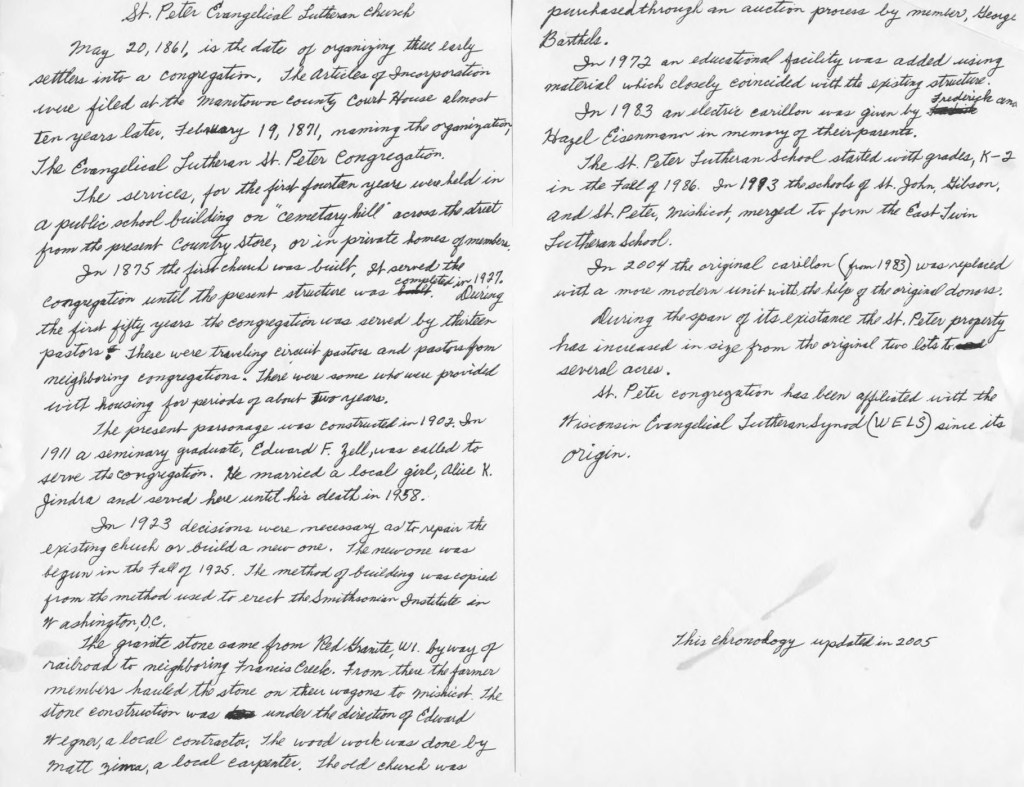 St. Peter Evangelical Lutheran Church
May 20, 1861, is the date of organizing these early
settlers into a congregation. The Articles of Incorporation
were filed at the Manitowoc County Court House almost
ten years later, February 19, 1871, naming the organization,
The Evangelical Lutheran St. Peter Congregation.
The services, for the first fourteen years were held in
a public school building on "cemetary hill" across the street
from the present Country Store, or in private homes of members.
In 1875 the first church was built. It served the
congregation until the present structure was completed in 1927.
During
the first fifty years the congregation was served by thirteen
pastors. These were traveling circuit pastors and pastors from
neighboring congregations. There were some who were provided
with housing for periods of about two years.
The present parsonage was constructed in 1902. In
1911 a seminary graduate, Edward F. Zell, was called to
serve the congregation. He married a local girl, Alice K.
Jindra and served here until his death in 1958.
In 1923 decisions were necessary as to repair the
existing chuch or build a new one. The new one was
begun in the Fall of 1925. The method of building was copied
from the method used to erect the Smithsonian Institute in
Washington, D.C.
The granite stone came from Red Granite, WI. by way of
railroad to neighboring Francis Creek. From there the farmer
members hauled the stone on their wagons to Mishicot. The
stone construction was under the direction of Edward
Wegner, a local contractor. The wood work was done by
Matt Zima, a local carpenter. The old church was
purchased through an auction process by member, George
Barthels.
In 1972 an educational facility was added using
material which closely coincided with the existing structure.
In 1983 an electric carillon was given by Frederick and
Hazel Eisenmann in memory of their parents.
The St. Peter Lutheran School started with grades, K-2
in the Fall of 1986. In 1993 the schools of St. John, Gibson,
and St. Peter, Mishicot, merged to form the East Twin
Lutheran School.
In 2004 the original carillon (from 1983) was replaced
with a more modern unit with the help of the original donors.
During the span of its existance the St. Peter property
has increased in size from the original two lots to
several acres.
St. Peter congregation has been affiliated with the
Wisconsin Evangelical Lutheran Synod (WELS) since its
origin.
This chronology updated in 2005